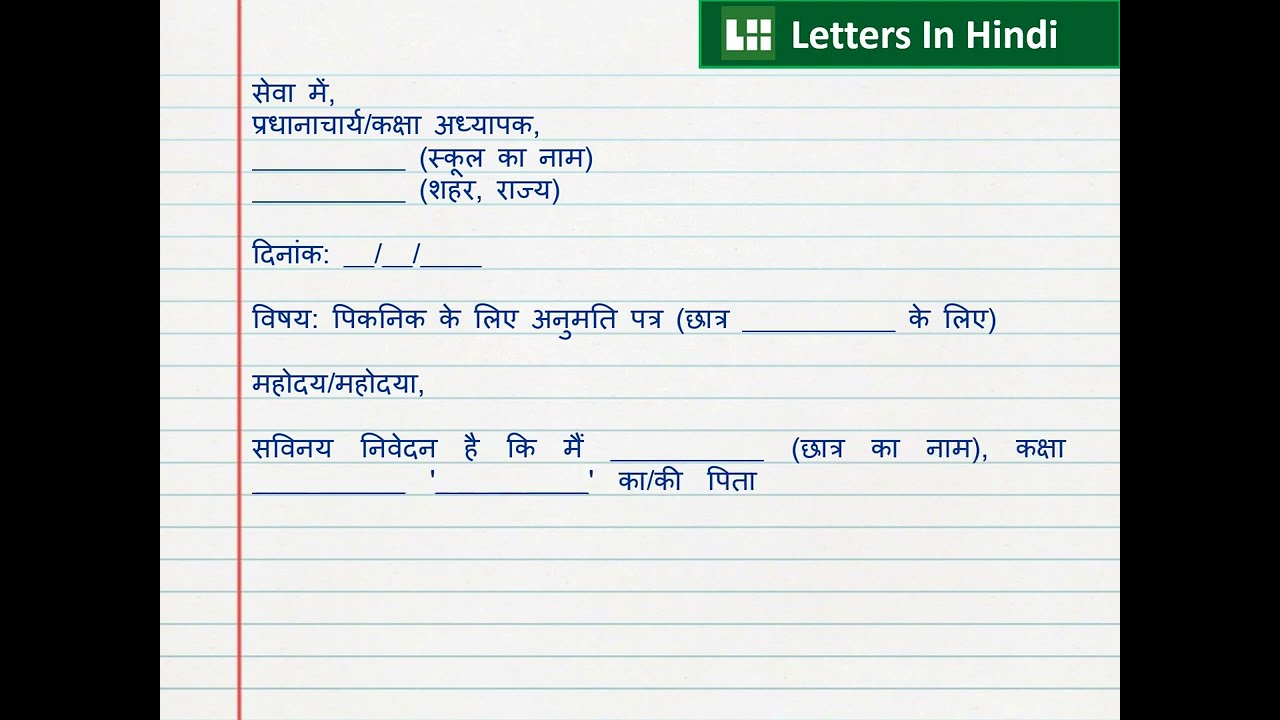 Letters In Hindi
सेवा में,
प्रधानाचार्य/कक्षा अध्यापक,
__________ (स्कूल का नाम)
__________ (शहर, राज्य)
दिनांक: __/__/____
विषय: पिकनिक के लिए अनुमति पत्र (छात्र __________ के लिए)
महोदय/महोदया,
सविनय निवेदन है कि मैं __________ (छात्र का नाम), कक्षा
__________ '__________' का/की पिता